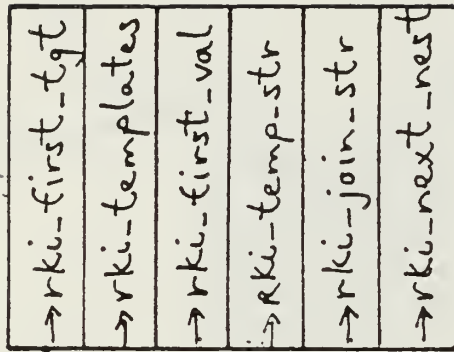 →rki_first_tgt
→rki_templates
→rki_first_val
→Rki_temp_str
→rki_join_str
→rki_next_nest